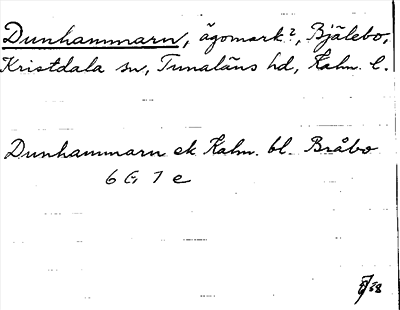 Dunhammarn, ägomark?, Bjälebo,
Kristdala sn, Tunaläns hd, Kalm. l.
Dunhammarn ek Kalm. bl. Bråbo
6 G 7 e